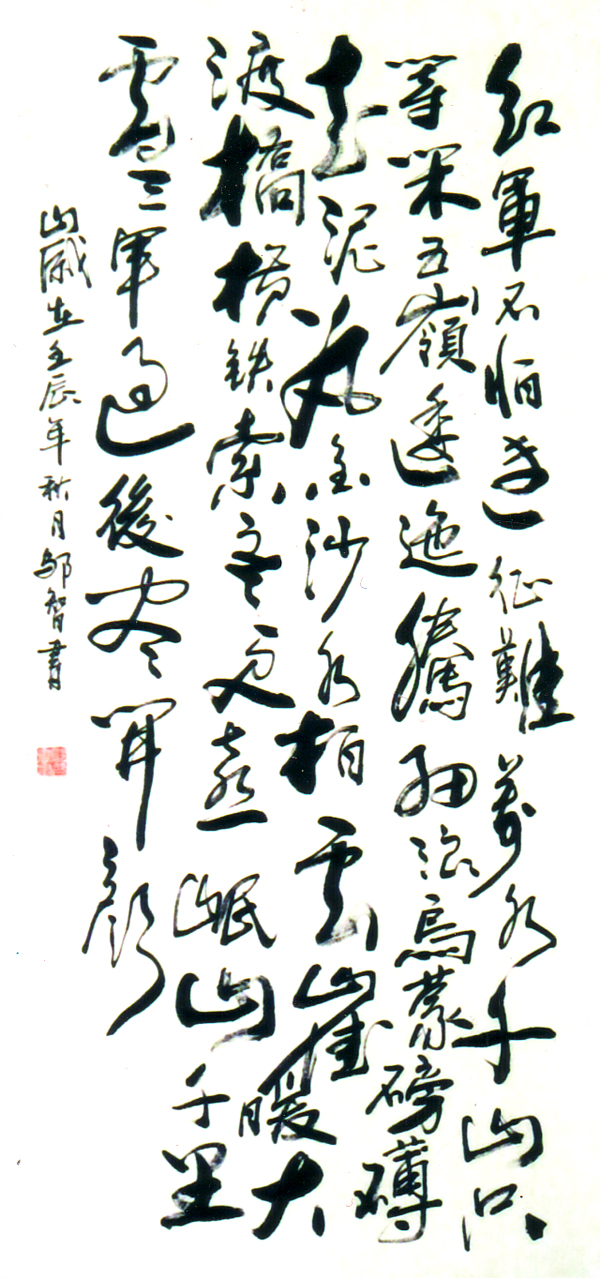 紅軍不怕遠征難萬水千山只
等閑五嶺逶迤騰細浪烏蒙磅礴
走泥丸金沙水拍雲崖暖大
渡橋橫鉄索寒更喜岷山千里
雪三軍過後尽開顏
歲在壬辰年秋月智書